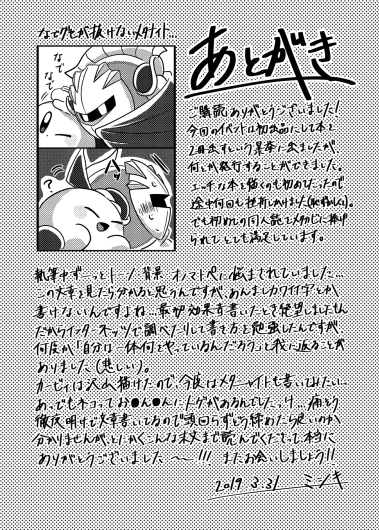 なでグセが抜けないメタナイト…
なで
なで
?
あとがき
ご購読ありがとうございました!
今回のイベントは初出品にして本を
2冊出すという暴挙に出ましたが、
何とか発行することができました。
エッチな本を描くのも初めてだったので
途中何回も挫折しかけました(恥ずかしい)。
でも初めての同人誌でメタカビに捧げ
られてとても満足しています。
執筆中ずーっとトーン、背景、オノマトペに悩まされていました…
この文章を見たら分かると思うんですが、あんましカワイイ字とか
書けないんですよね…最初効果音書いたとき絶望しましたもん
だからインターネッツで調べたりして書き方を勉強したんですが、
何度か「自分は一体何をやっているんだろう」と我に返ることが
ありました(悲しい)。
カービィは沢山描けたので、今度はメタナイトも書いてみたい…
あっでもネコっておち●ん●んにトゲがあるんでしたっけ…痛そう
徹夜明けで文章書いてるので頭回らずどう締めたら良いのか
分かりませんが、とにかくこんな本文まで読んでくださって本当に
ありがとうございました〜!!! またお会いしましょう!!
2019.3.31 ミシキ